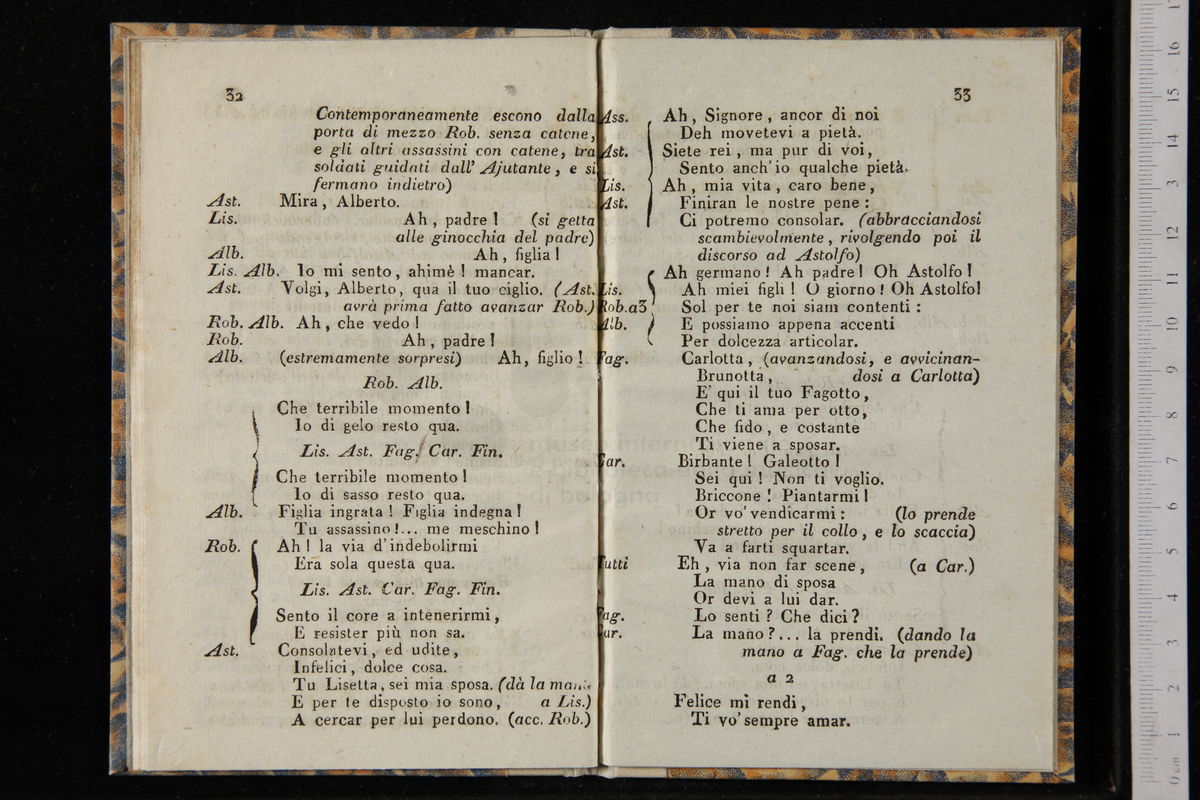 32
Contemporaneamente escono dalla
porta di mezzo Rob. senza catene,
e gli altri assassini con catene, tra
soldati guidati dall' Ajutante, e si
fermano indietro)
Ast. Mira, Alberto.
Lis. Ah, padre! (si getta
alle ginocchia del padre)
Alb. Ah, figlia!
Lis. Alb. Io mi sento, ahimè! mancar.
Ast. Volgi, Alberto, qua il tuo ciglio. (Ast.
avrà prima fatto avanzar Rob.)
Rob. Alb. Ah, che vedo!
Rob. Ah, padre!
Alb. (estremamente sorpresi) Ah, figlio!
Rob. Alb.
Che terribile momento!
Io di gelo resto qua.
Lis. Ast. Fag. Car. Fin.
Che terribile momento!
Io di sasso resto qua.
Alb. Figlia ingrata! Figlia indegna!
Tu assassino!... me meschino!
Rob. Ah! la via d'indebolirmi
Era sola questa qua.
Lis. Ast. Car. Fag. Fin.
Sento il core a intenerirmi,
E resister più non sa.
Ast. Consolatevi, ed udite,
Infelici, dolce cosa.
Tu Lisetta, sei mia sposa. (dà la mano
E per te disposto io sono, a Lis.)
A cercar per lui perdono. (acc. Rob.)
33
Ass. Ah, Signore, ancor di noi
Deh movetevi a pietà.
Ast. Siete rei, ma pur di voi,
Sento anch'io qualche pietà.
Lis. Ah, mia vita, caro bene,
Ast. Finiran le nostre pene:
Ci potremo consolar. (abbracciandosi
scambievolmente, rivolgendo poi il
discorso ad Astolfo)
Ah germano! Ah padre! Oh Astolfo!
Lis. Ah miei figli! O giorno! Oh Astolfo!
Rob. a3 Sol per te noi siam contenti:
Alb. E possiamo appena accenti
Per dolcezza articolar.
Fag. Carlotta, (avanzandosi, e avvicinan-
Brunotta, dosi a Carlotta)
E' qui il tuo Fagotto,
Che ti ama per otto,
Che fido, e costante
Ti viene a sposar.
Car. Birbante! Galeotto!
Sei qui! Non ti voglio.
Briccone! Piantarmi!
Or vo' vendicarmi: (lo prende
stretto per il collo, e lo scaccia)
Va a farti squartar.
Tutti Eh, via non far scene, (a Car.)
La mano di sposa
Or devi a lui dar.
Fag. Lo senti? Che dici?
Car. La mano?... la prendi. (dando la
mano a Fag. che la prende)
a 2
Felice mi rendi,
Ti vo' sempre amar.